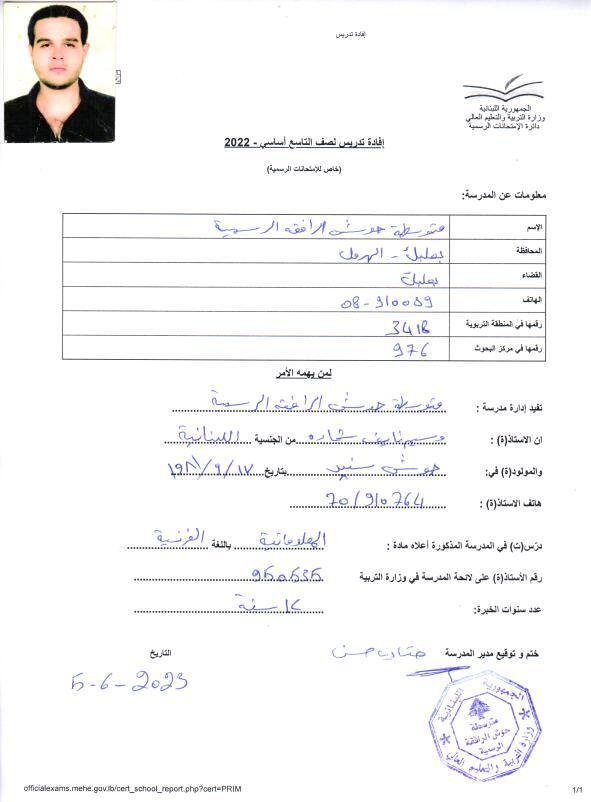 إفادة تدريس
الجمهورية اللبنانية
وزارة التربية والتعليم العالي
دائرة الإمتحانات الرسمية
إفادة تدريس لصف التاسع أساسي - 2022
(خاص للإمتحانات الرسمية)
معلومات عن المدرسة:
الإسم متوسطة حوش الرافقة الرسمية
المحافظة بعلبك - الهرمل
القضاء بعلبك
الهاتف
رقمها في المنطقة التربوية
رقمها في مركز البحوث 976
لمن يهمه الأمر
تفيد إدارة مدرسة : متوسطة حوش الرافقة الرسمية
ان الاستاذ(ة) : وسيم نايف من الجنسية اللبنانية
والمولود(ة) في: حوش سنيد بتاريخ
هاتف الاستاذ(ة) : 70/910764
درّس(ت) في المدرسة المذكورة أعلاه مادة : المعلوماتية باللغة الفرنسية
رقم الأستاذ(ة) على لائحة المدرسة في وزارة التربية
عدد سنوات الخبرة: سنة
ختم و توقيع مدير المدرسة
التاريخ
5-6-2023
الجمهورية اللبنانية
متوسطة
حوش الرافقة
الرسمية
وزارة التربية والتعليم العالي
officialexams.mehe.gov.lb/cert_school_report.php?cert=PRIM 1/1